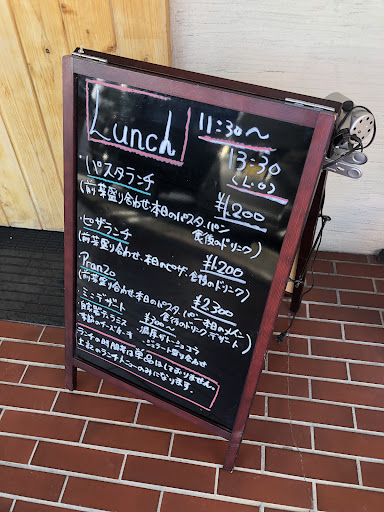 Lunch 11:30〜
13:30
(L.O)
・パスタランチ ¥1200
(前菜盛り合わせ・本日のパスタ、パン
食後のドリンク)
・ピザランチ ¥1200
(前菜盛り合わせ、本日のピザ、食後のドリンク)
Pranzo ¥2300
(前菜盛り合わせ、本日のパスタ、パン、本日のメイン
食後のドリンク、デザート)
・ミニデザート ¥300〜
ティラミス ・濃厚ガトーショコラ
季節のチーズケーキ ・ジェラート盛り合わせ
ランチの時間帯は単品はしておりません。
上記のランチメニューのみになります。